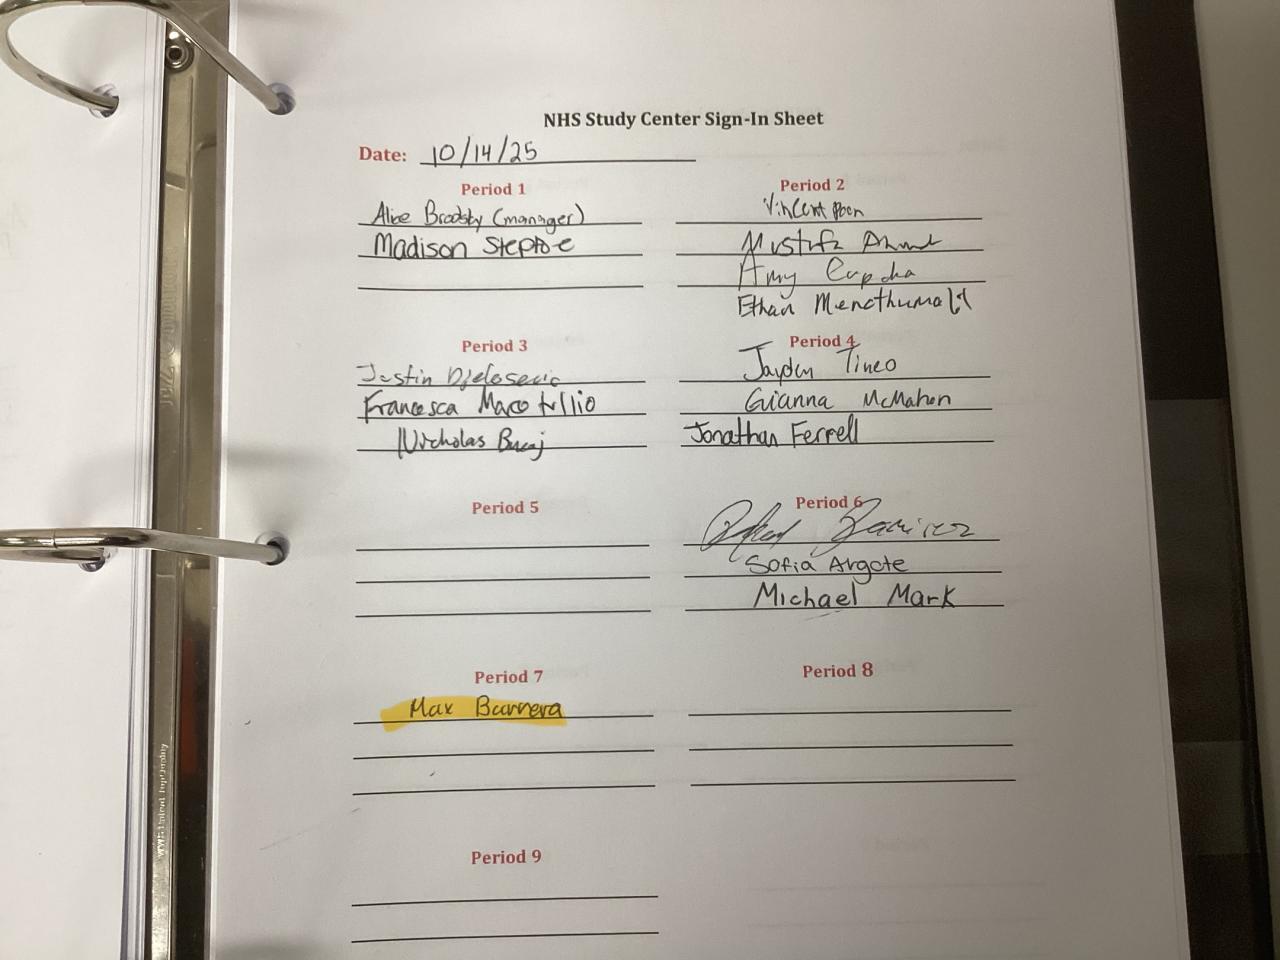 NHS Study Center Sign-In Sheet
Date: 10/14/25
Period 1
Alice Brodsky (manager)
Madison Steptoe
Period 2
Vincent
Mustafa Ahmed
Amy
Ethan
Period 3
Justin Djelosevic
Francesca Marcotullio
Nicholas
Period 4
Jayden Tineo
Gianna McMahon
Jonathan Ferrell
Period 5
Period 6
Ramirez
Sofia Argote
Michael Mark
Period 7
Max Barrera
Period 8
Period 9